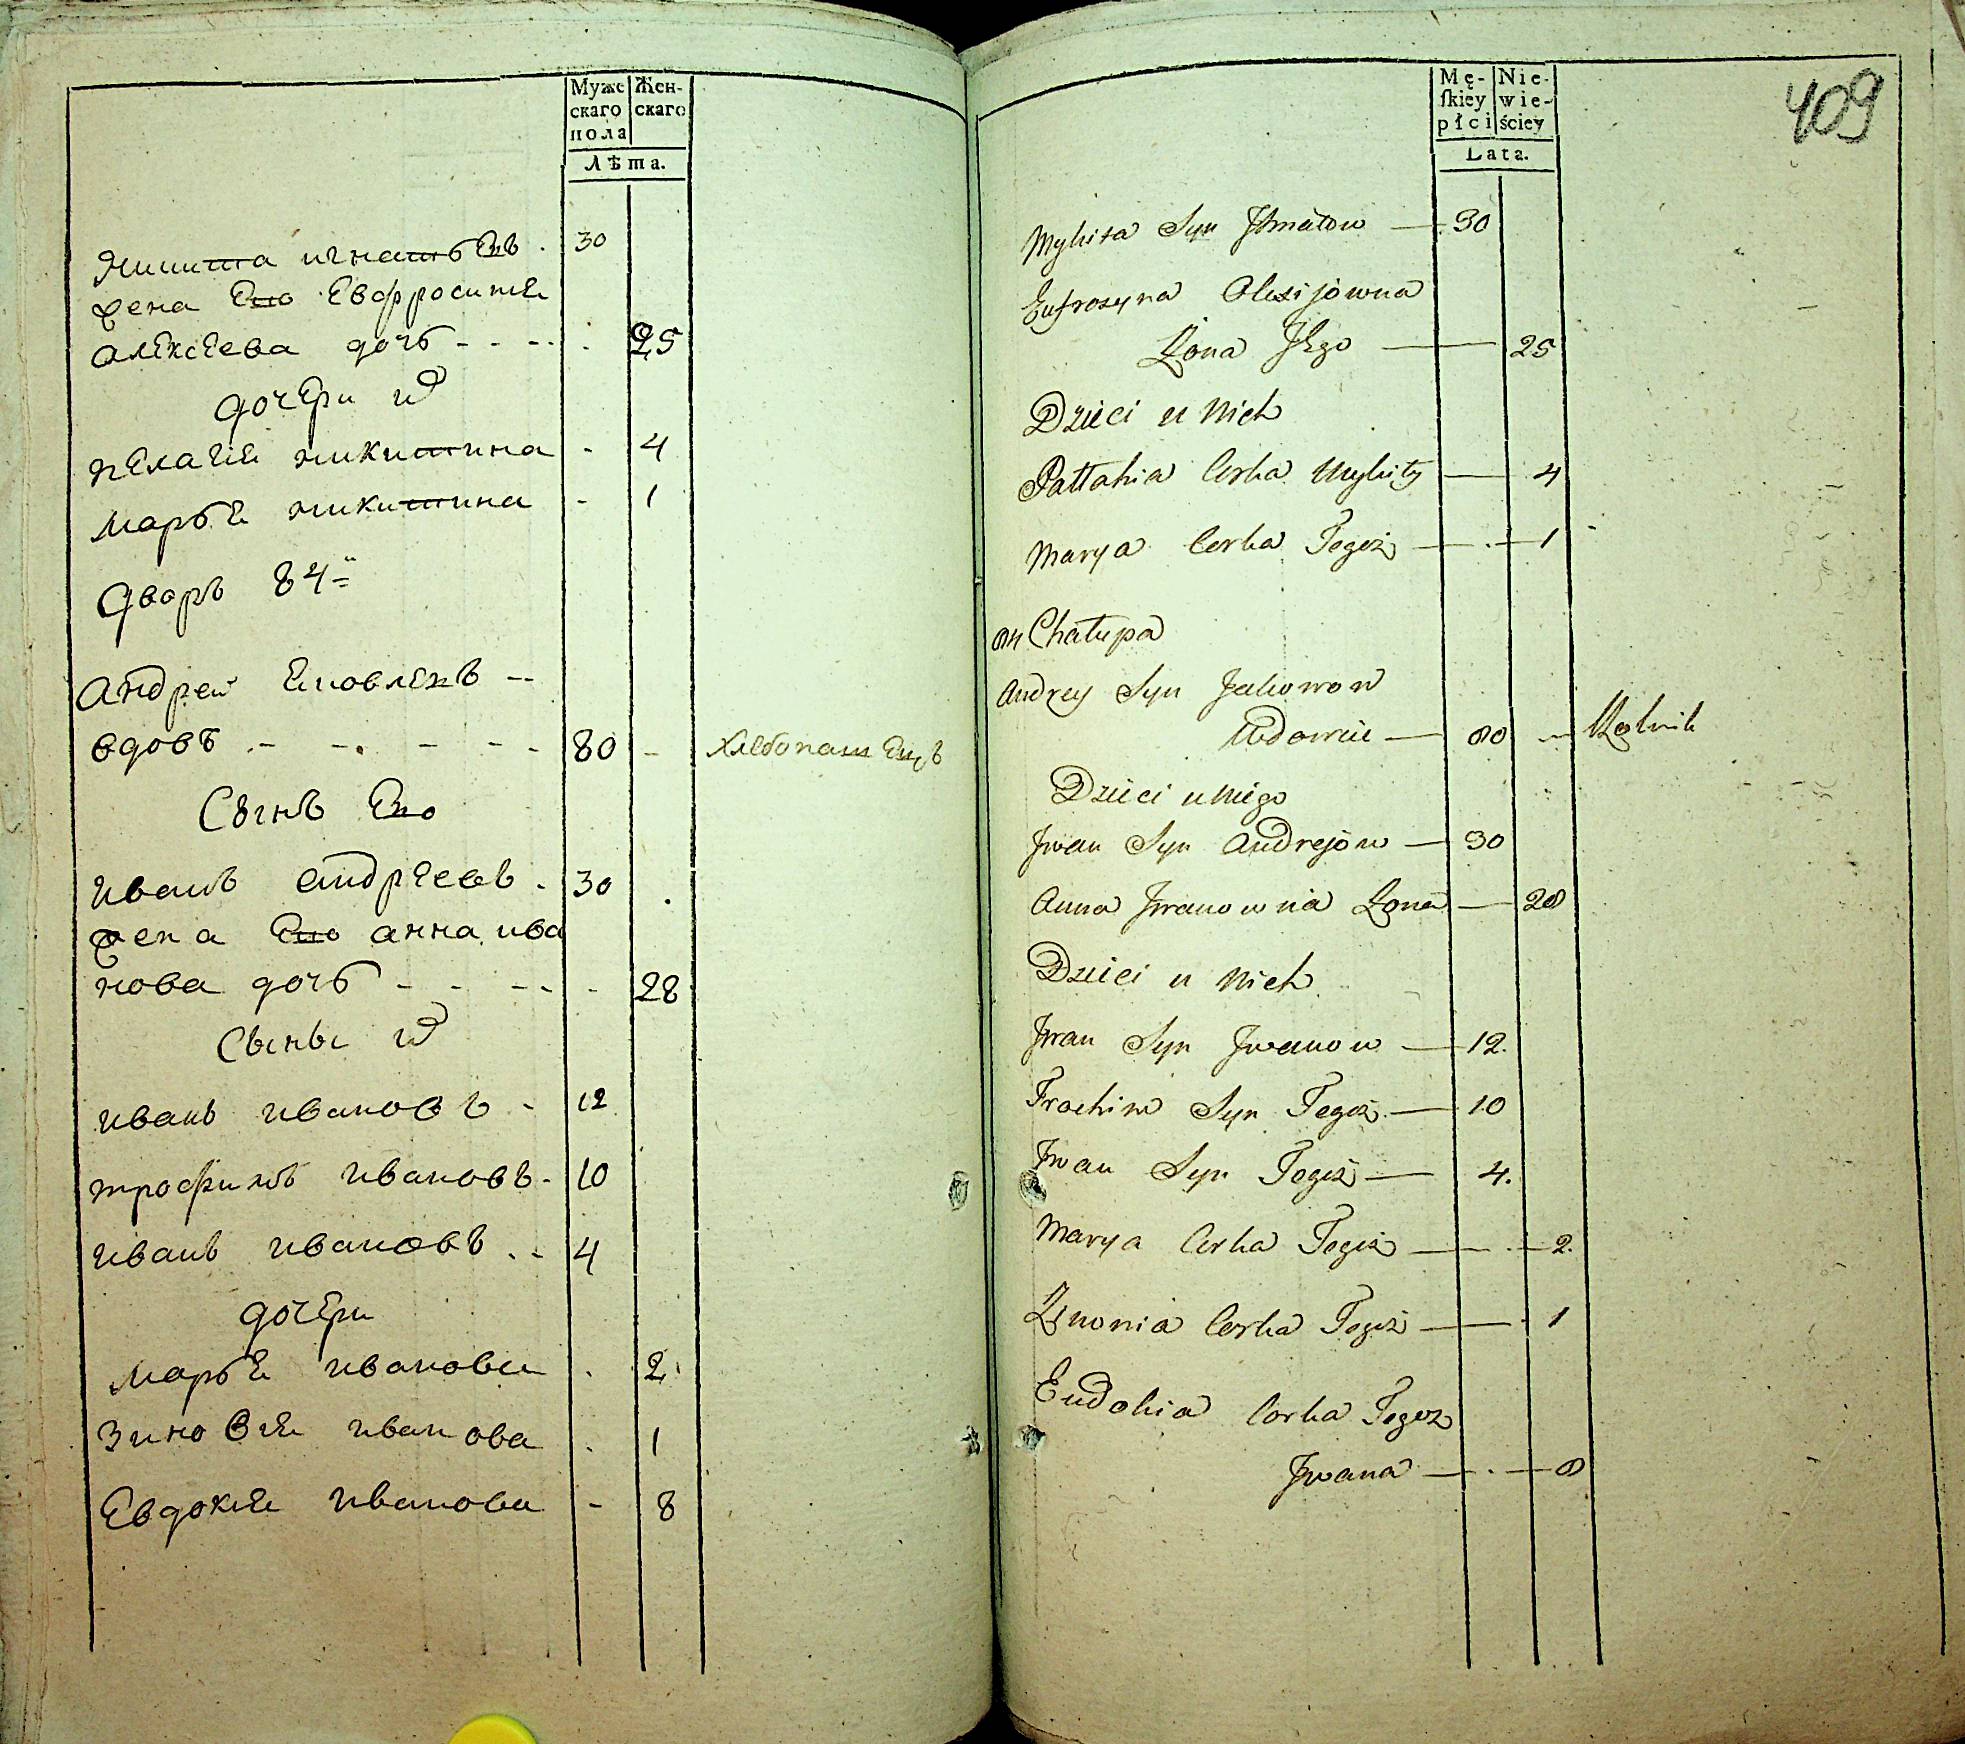 Муже
скаго
пола
Жен-
скаго
Лѣта.
Никита игнатьевъ . 30
жена Его Евфросинiя
алексеева дочь - - - - . 25
дочери ихъ
пелагiя никитина - 4
марья никитина - 1
Дворъ 84й
Андрей яковлевъ --
вдовъ .- -. - - - 80 - хлебопашецъ
Сынъ Его
иванъ андреевъ . 30
жена Его анна ива
нова дочь - - -- - 28
Сыны ихъ
иванъ ивановъ - 12
трофимъ ивановъ - 10
иванъ ивановъ . - 4
дочери
марья иванова . 2
зиновiя иванова . 1
Евдокiя иванова - 8
Mę-
ſkiey
płci
Nie-
wie-
ściey
Lata.
409
Mykita Syn Jhnatow — 30
Eufrosyna Olexijowna
Żona Jego — 25
Dzieci u Nich
Pałłahia Corka Mykity — 4
Marya Corka Tegoż — 1
84 Chałupa
Andrey Syn Jakowow
Wdowiec — 80 — Rolnik
Dzieci u Niego
Jwan Syn Andrejow — 30
Anna Jwanowna Żona — 28
Dzieci u Nich
Jwan Syn Jwanow — 12.
Trochim Syn Tegoż — 10
Jwan Syn Tegoż — 4.
Marya Corka Tegoż — 2.
Zinowia Corka Tegoż — 1
Eudokia Corka Tegoż
Jwana — 8